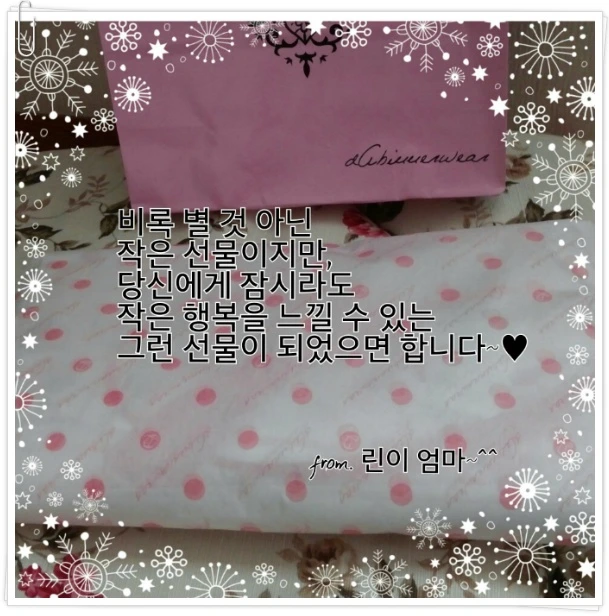 비록 별 것 아닌
작은 선물이지만,
당신에게 잠시라도
작은 행복을 느낄 수 있는
그런 선물이 되었으면 합니다~♥
from. 린이 엄마~^^